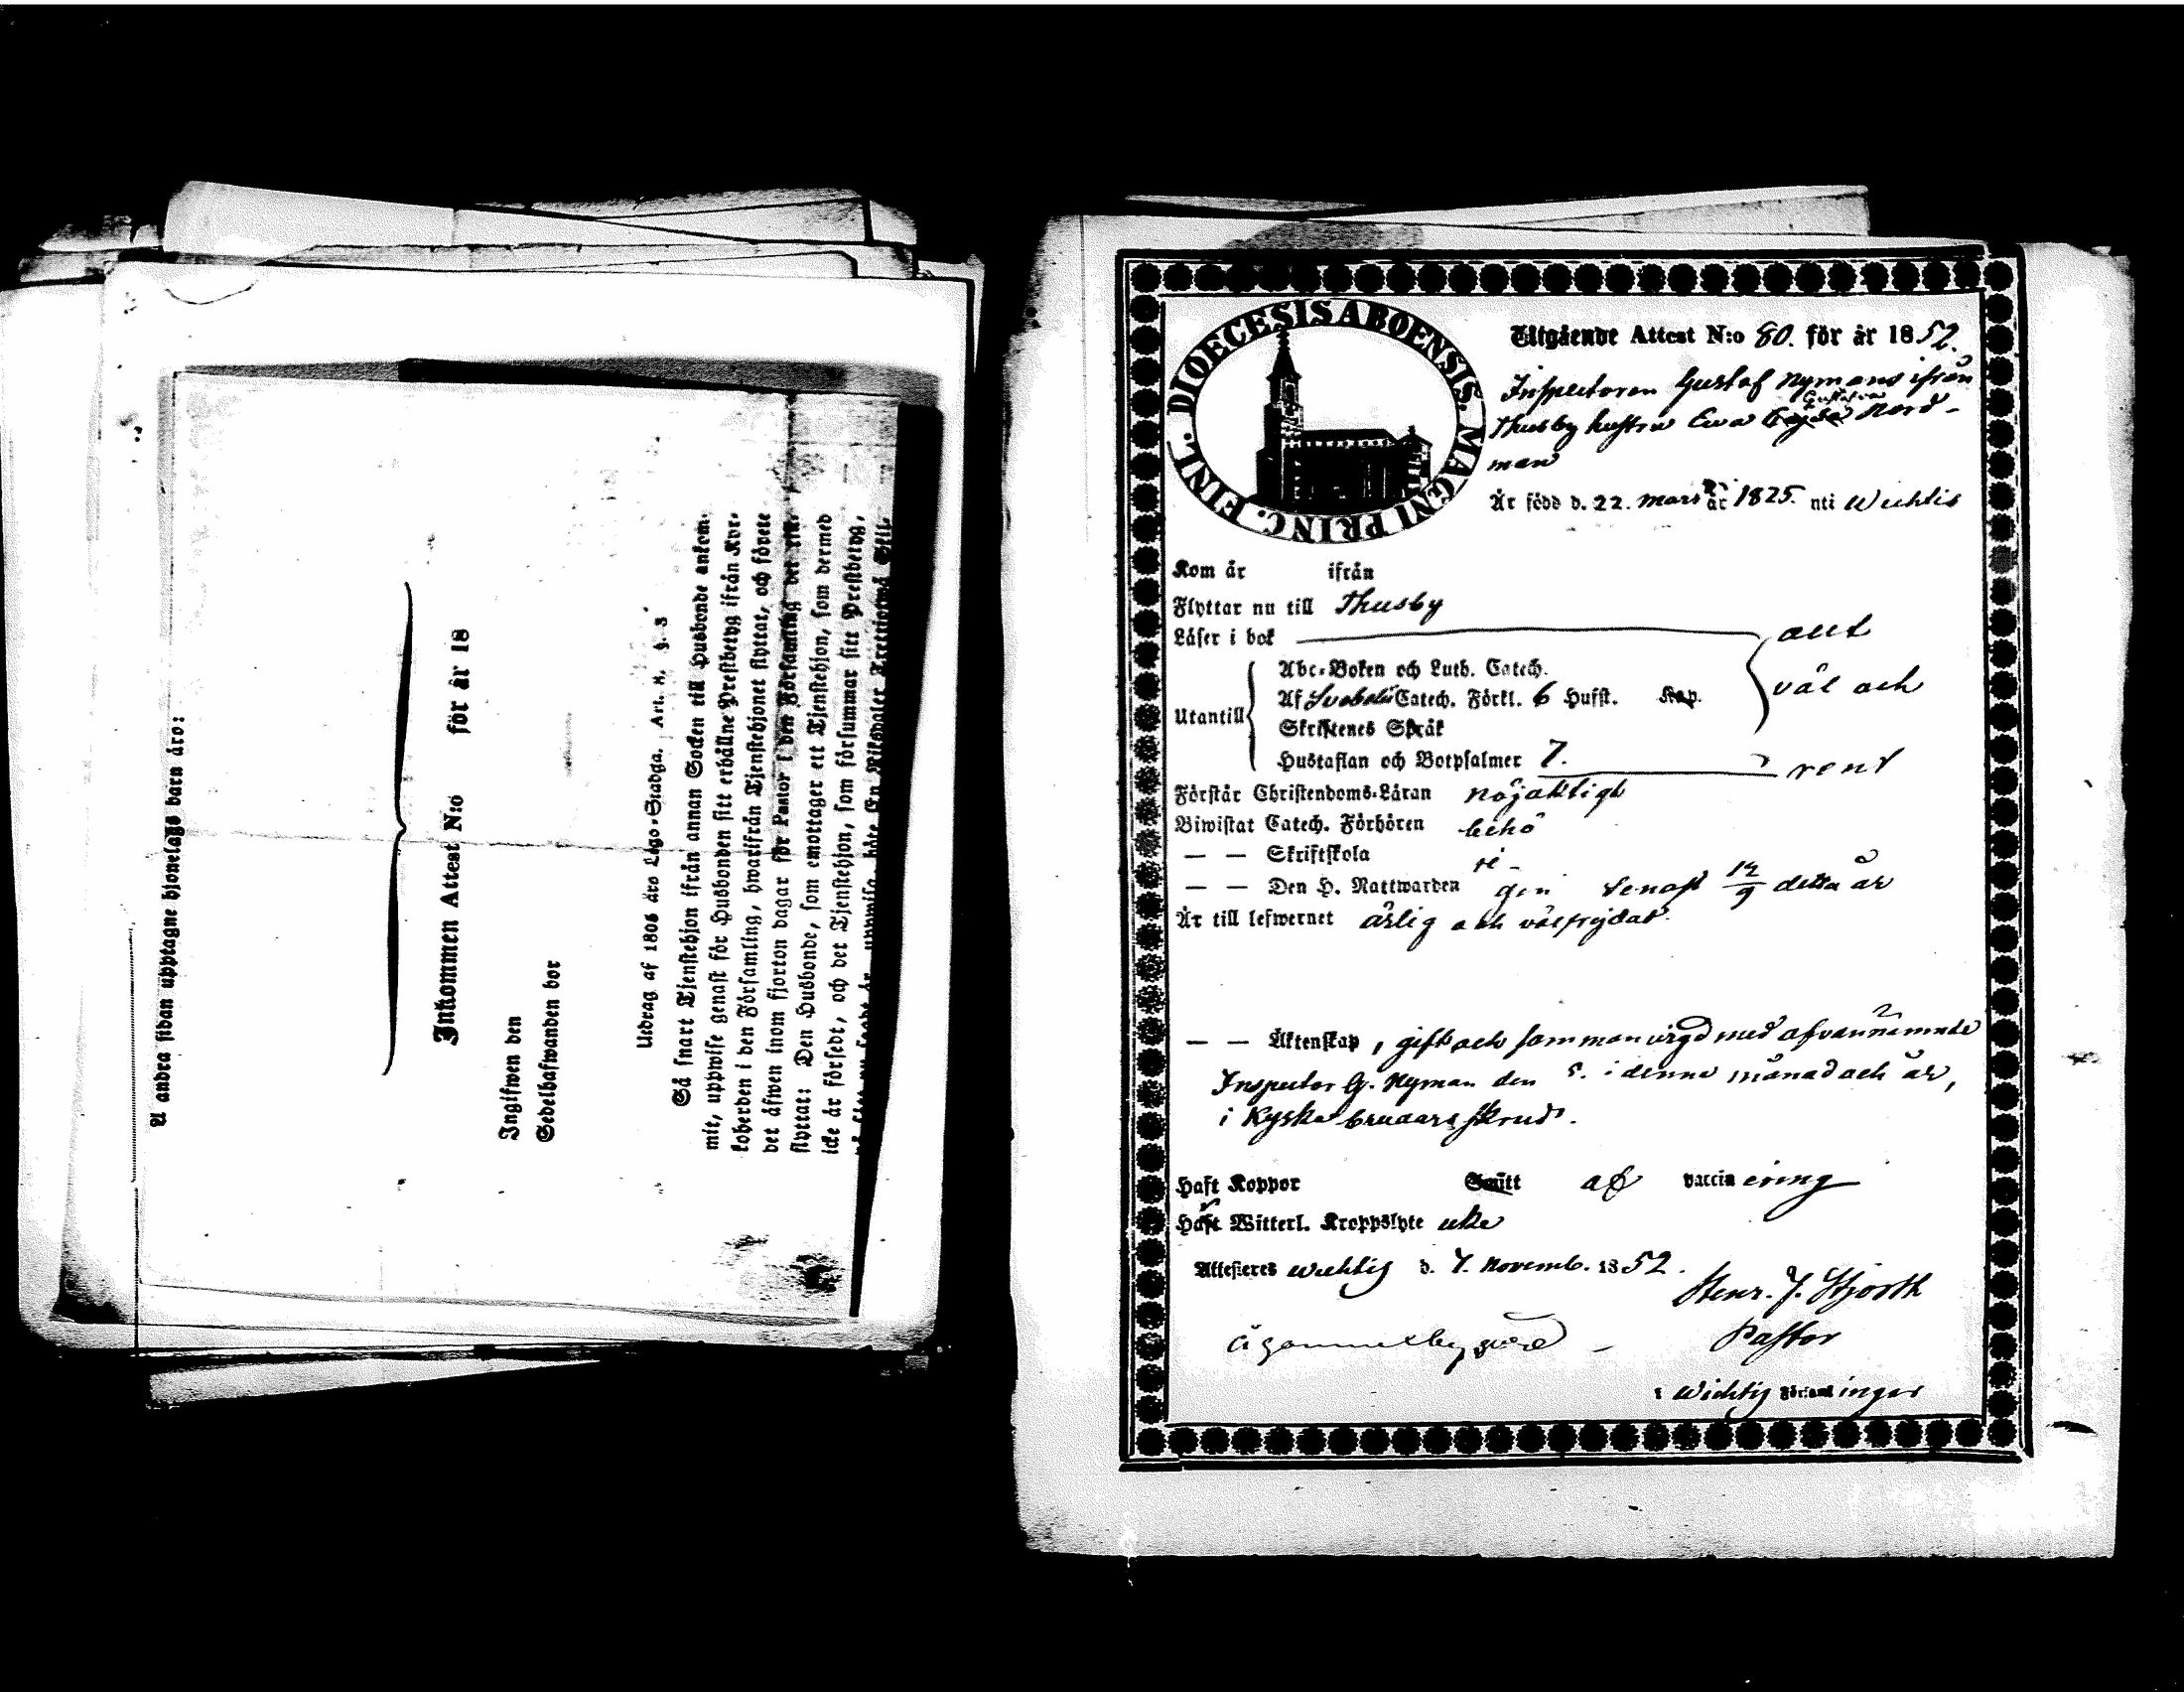 A andra sidan upptagne hjonelags barn äro:
Inkommen Attest N:o för år 18
Ingifwen den
Sedelhafwanden bor
Utdrag af 1805 års Lego-Stadga. Art. §. 3
Så snart Tjenstehjon ifrån annan Socken till Husbonde ankom-
mit, uppwise genast för Husbonden sitt erhållne Prestbetyg ifrån Kyr-
koherden i den Församling, hwarifrån Tjenstehjonet flyttat, och förete
det äfwen inom fjorton dagar för Pastor i den Församling det
flyttat: Den Husbonde, som emottager ett Tjenstehjon, som dermed
icke är försedt, och det Tjenstehjon, som försummar sitt Prestbetyg,
DIOECESIS ABOENSIS. MAGNI PRINC. FINL.
Utgående Attest N:o 80. för år 1852.
Inspectoren Gustaf Nymans ifrån
Gustafva
Thusby hustru Eva Nord-
man
Är född d. 22. Mars år 1825. uti Wichtis
Kom år ifrån
Flyttar nu till Thusby
Läser i bok allt
Abc-Boken och Luth. Catech.
Utantill Af Svebelii Catech. Förkl. 6 Hufst. Kap. väl och
Skriftenes Språk
Hustaflan och Botpsalmer 7. rent
Förstår Christendoms-Läran nöjaktligt
Biwistat Catech. Förhören behö
— — Skriftskola ri-
— — Den H. Nattwarden gen senast 12/9 detta år
Är till lefwernet ärlig och välfrejdad.
— — Äktenskap, gift och sammanvigd med ofvannämnde
Inspector G. Nyman den 5. i denna månad och år,
i Kyska brudars skrud.
Haft Koppor Smitt af vaccinering
Haft Witterl. Kroppslyte icke
Attesteras Wichtis d. 7. Novemb. 1852.
Henr. J. Hjorth
Pastor
i Wichtis Församlingar